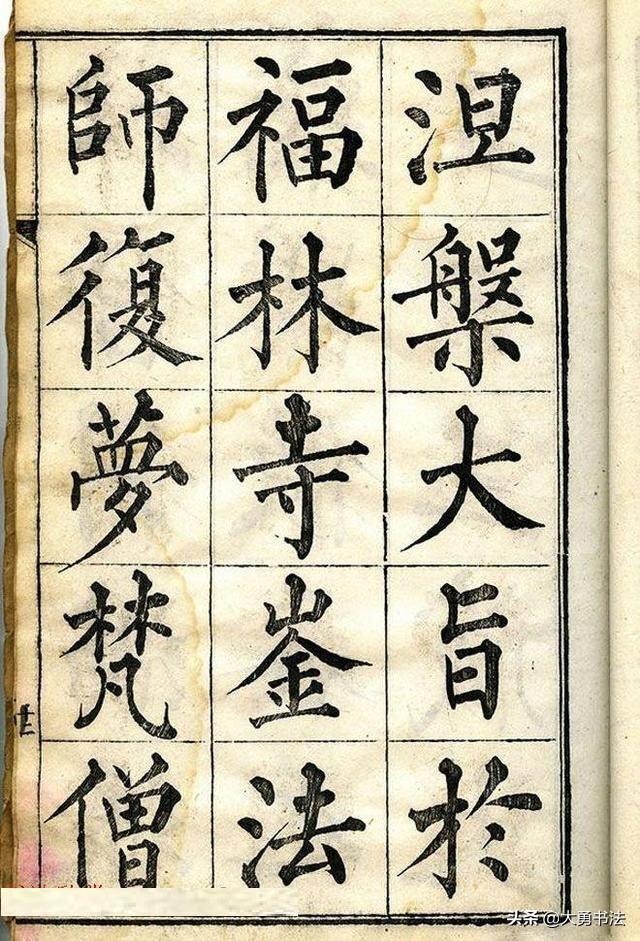 涅槃大旨於
福林寺崟法
師復夢梵僧
头条@大勇书法